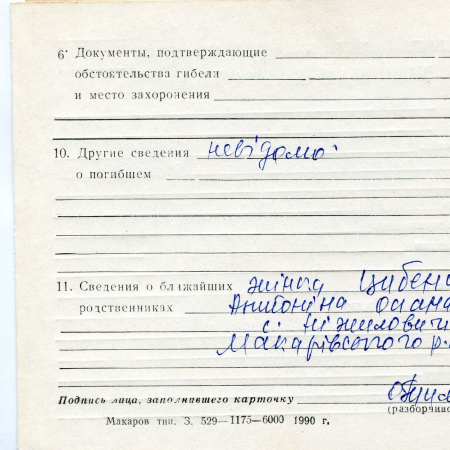 6· Документы, подтверждающие
обстоятельства гибели
и место захоронения
10. Другие сведения невідомо
о погибшем
11. Сведения о ближайших жінка Цибен
родственниках Антоніна
с. Ніжиловичі
Макарівського р.
Подпись лица, заполнившего карточку
(разборчиво
Макаров тип. З. 529—1175—6000 1990 г.